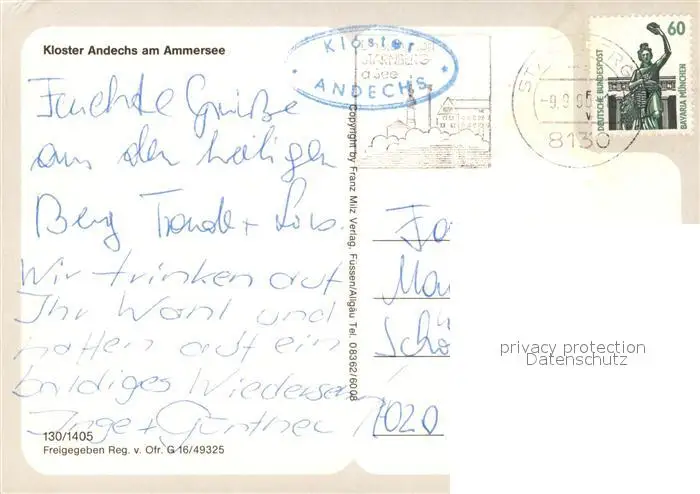 Kloster Andechs am Ammersee
Kloster
ANDECHS
STARNBERG
a See
-9.9.90
8130
60
DEUTSCHE BUNDESPOST
BAVARIA MÜNCHEN
Feuchte Grüße
aus dem heiligen
Berg
Wir trinken auf
Ihr Wohl und
hoffen auf ein
baldiges Wiedersehen
Inge + Günther
Copyright by Franz Milz Verlag, Füssen/Allgäu Tel. 08362/6008
Schö
privacy protection
Datenschutz
130/1405
Freigegeben Reg. v. Ofr. G 16/49325